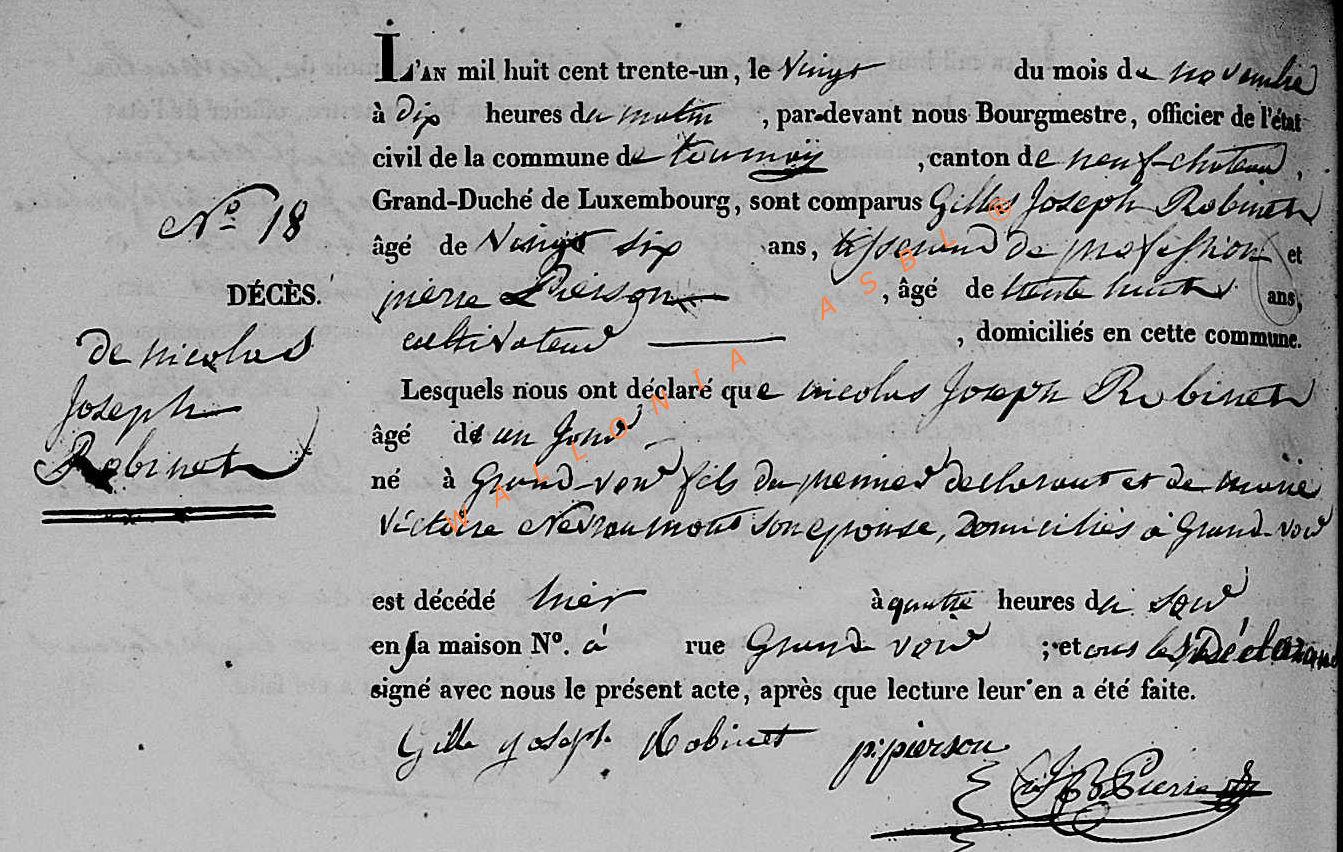 L'AN mil huit cent trente-un, le Vingt du mois de novembre
à dix heures du matin, par-devant nous Bourgmestre, officier de l'état
civil de la commune de tournay, canton de neufchateau,
Grand-Duché de Luxembourg, sont comparus Gilles Joseph Robinet
âgé de Vingt six ans, tisserand de profession et
pierre Pierson, âgé de trente huit ans,
cultivateur, domiciliés en cette commune.
Lesquels nous ont déclaré que nicolas Joseph Robinet
âgé de un jour
né à Grand-voir fils du premier declarant et de marie
victoire Nerenmont son epouse, Domiciliés à Grand-voir
est décédé hier à quatre heures du soir
en sa maison N°. à rue Grand voir ; et ons les Déclarans
signé avec nous le présent acte, après que lecture leur en a été faite.
Gille Joseph Robinet p: pierson
J B Pierre
N° 18
DÉCÈS.
de nicolas
Joseph
Robinet
WALLONIA ASBL ®